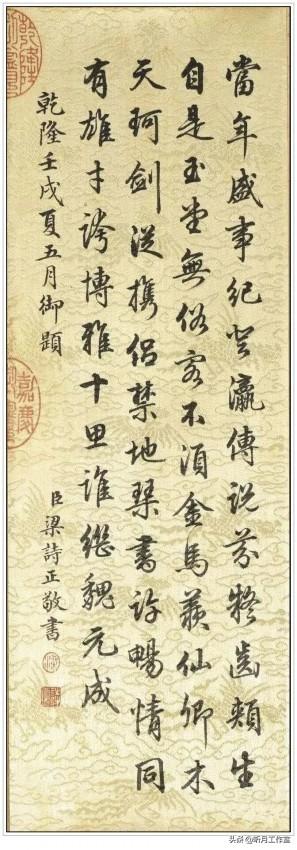 當年盛事紀登瀛傳說芬猶齒頰生
自是玉堂無俗客不須金馬羨仙卿木
天珂劍從攜侶禁地琴書許暢情同
有雄才誇博雅十思誰繼魏元成
乾隆壬戌夏五月御題
臣梁詩正敬書
乾隆
嘉慶
头条@昕月工作室